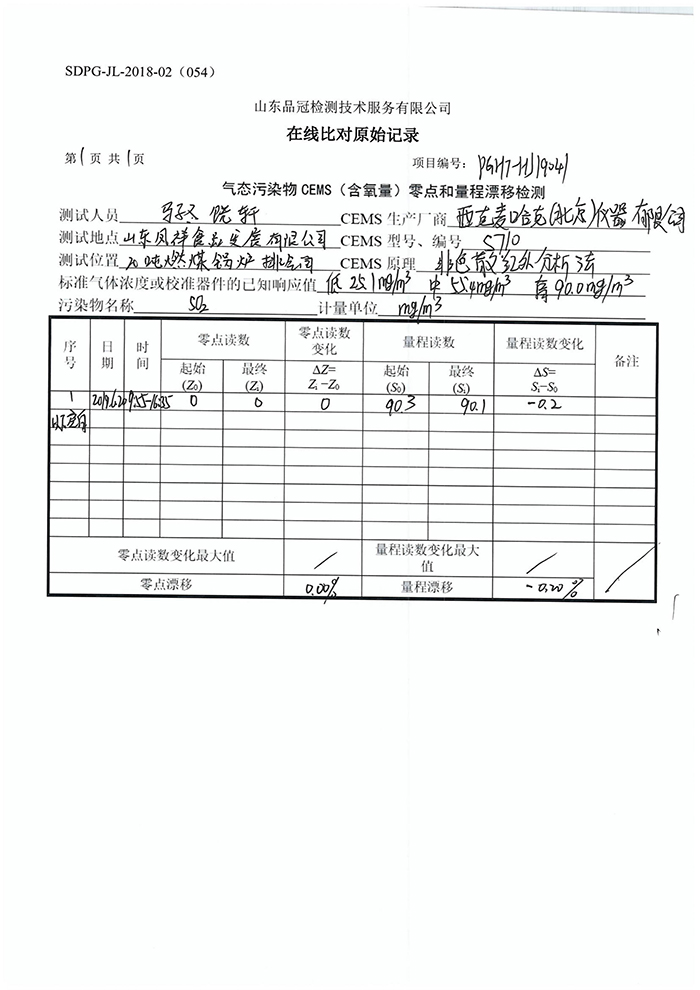 SDPG-JL-2018-02（054）
山东品冠检测技术服务有限公司
在线比对原始记录
第1页 共1页 项目编号：
气态污染物CEMS（含氧量）零点和量程漂移检测
测试人员 CEMS生产厂商 西克麦哈克(北京)仪器有限公司
测试地点 山东凤祥食品发展有限公司 CEMS型号、编号 S710
测试位置 20吨燃煤锅炉排气筒 CEMS原理 非色散红外分析法
标准气体浓度或校准器件的已知响应值 低25.1mg/m³ 中55.4mg/m³ 高90.0mg/m³
污染物名称 SO₂ 计量单位 mg/m³
序号 日期 时间 零点读数 零点读数变化 量程读数 量程读数变化 备注
起始(Z₀) 最终(Z₁) ΔZ=Z₁-Z₀ 起始(S₀) 最终(S₁) ΔS=S₁-S₀
1 2019.6.20 9:55-16:35 0 0 0 90.3 90.1 -0.2
以下空白
零点读数变化最大值 / 量程读数变化最大值 / /
零点漂移 0.00% 量程漂移 -0.20%